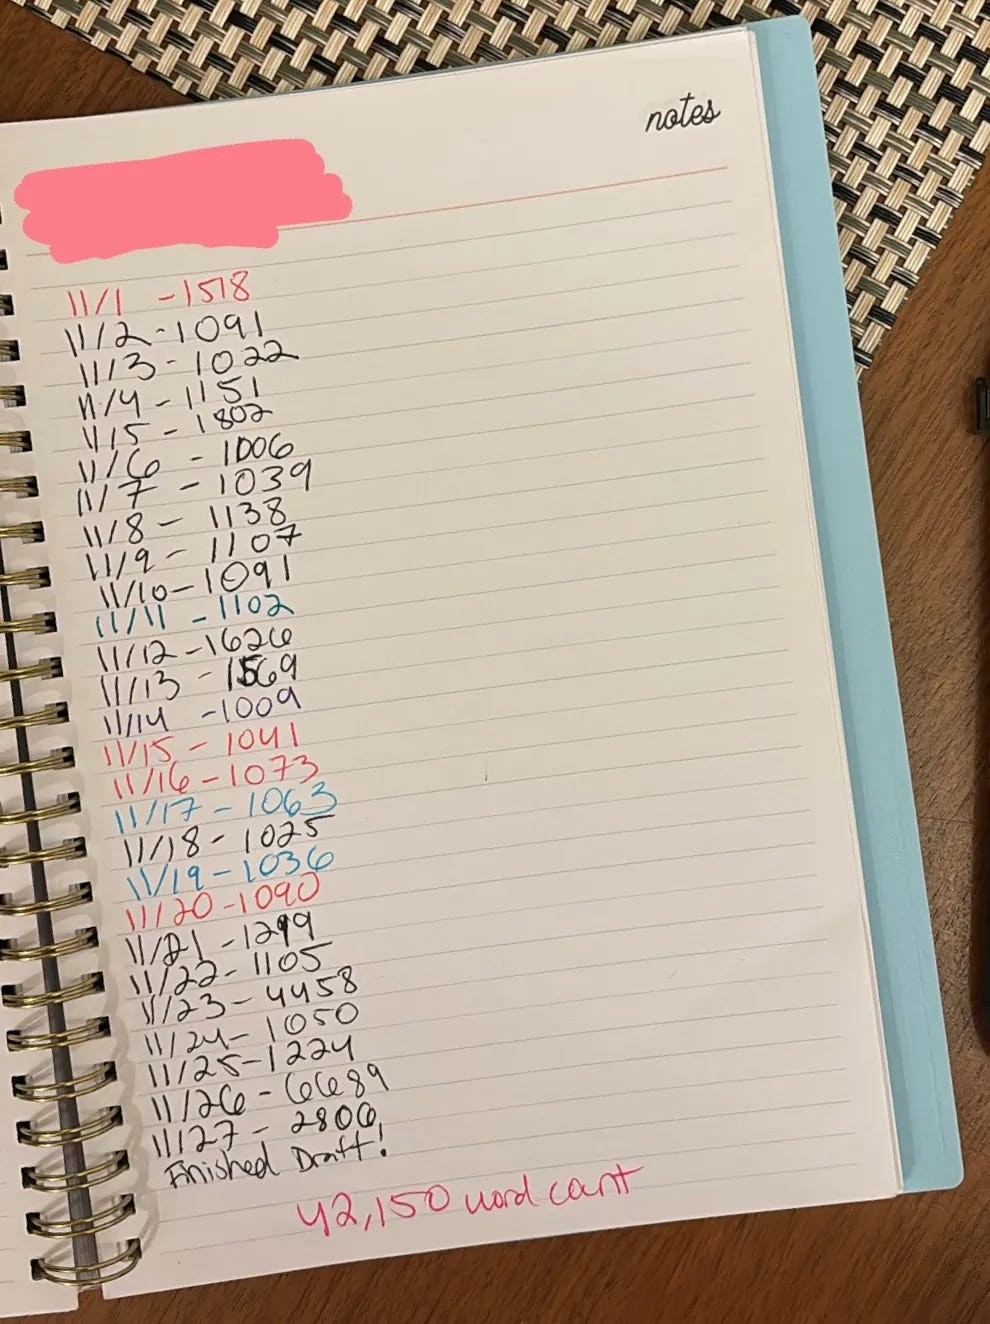 notes
11/1 - 1518
11/2 - 1091
11/3 - 1022
11/4 - 1151
11/5 - 1802
11/6 - 1006
11/7 - 1039
11/8 - 1138
11/9 - 1107
11/10 - 1091
11/11 - 1102
11/12 - 1626
11/13 - 1569
11/14 - 1009
11/15 - 1041
11/16 - 1073
11/17 - 1063
11/18 - 1025
11/19 - 1036
11/20 - 1090
11/21 - 1299
11/22 - 1105
11/23 - 4458
11/24 - 1050
11/25 - 1224
11/26 - 6689
11/27 - 2806
Finished Draft!
42,150 word count